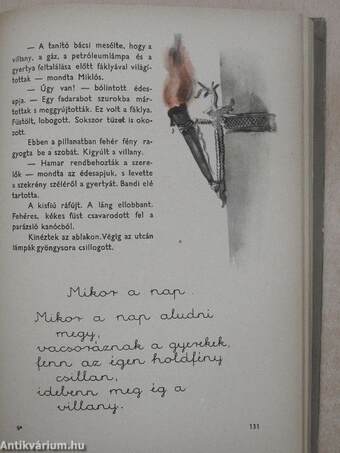 — A tanító bácsi mesélte, hogy a
villany, a gáz, a petróleumlámpa és a
gyertya feltalálása előtt fáklyával világí-
tottak — mondta Miklós.
— Úgy van! — bólintott édes-
apja. — Egy fadarabot szurokba már-
tottak s meggyújtották. Ez volt a fáklya.
Füstölt, lobogott. Sokszor tüzet is oko-
zott.
Ebben a pillanatban fehér fény ra-
gyogta be a szobát. Kigyúlt a villany.
— Hamar rendbehozták a szere-
lők — mondta az édesapjuk, s levette
a szekrény széléről a gyertyát. Bandi elé
tartotta.
A kisfiú ráfújt. A láng ellobbant.
Fehéres, kékes füst csavarodott fel a
parázsló kanócból.
Kinéztek az ablakon. Végig az utcán
lámpák gyöngysora csillogott.
Mikor a nap..
Mikor a nap aludni
megy,
vacsoráznak a gyerekek,
fenn az égen holdfény
csillan,
idebenn meg ég a
villany.
9*
131
Antikvárium.hu